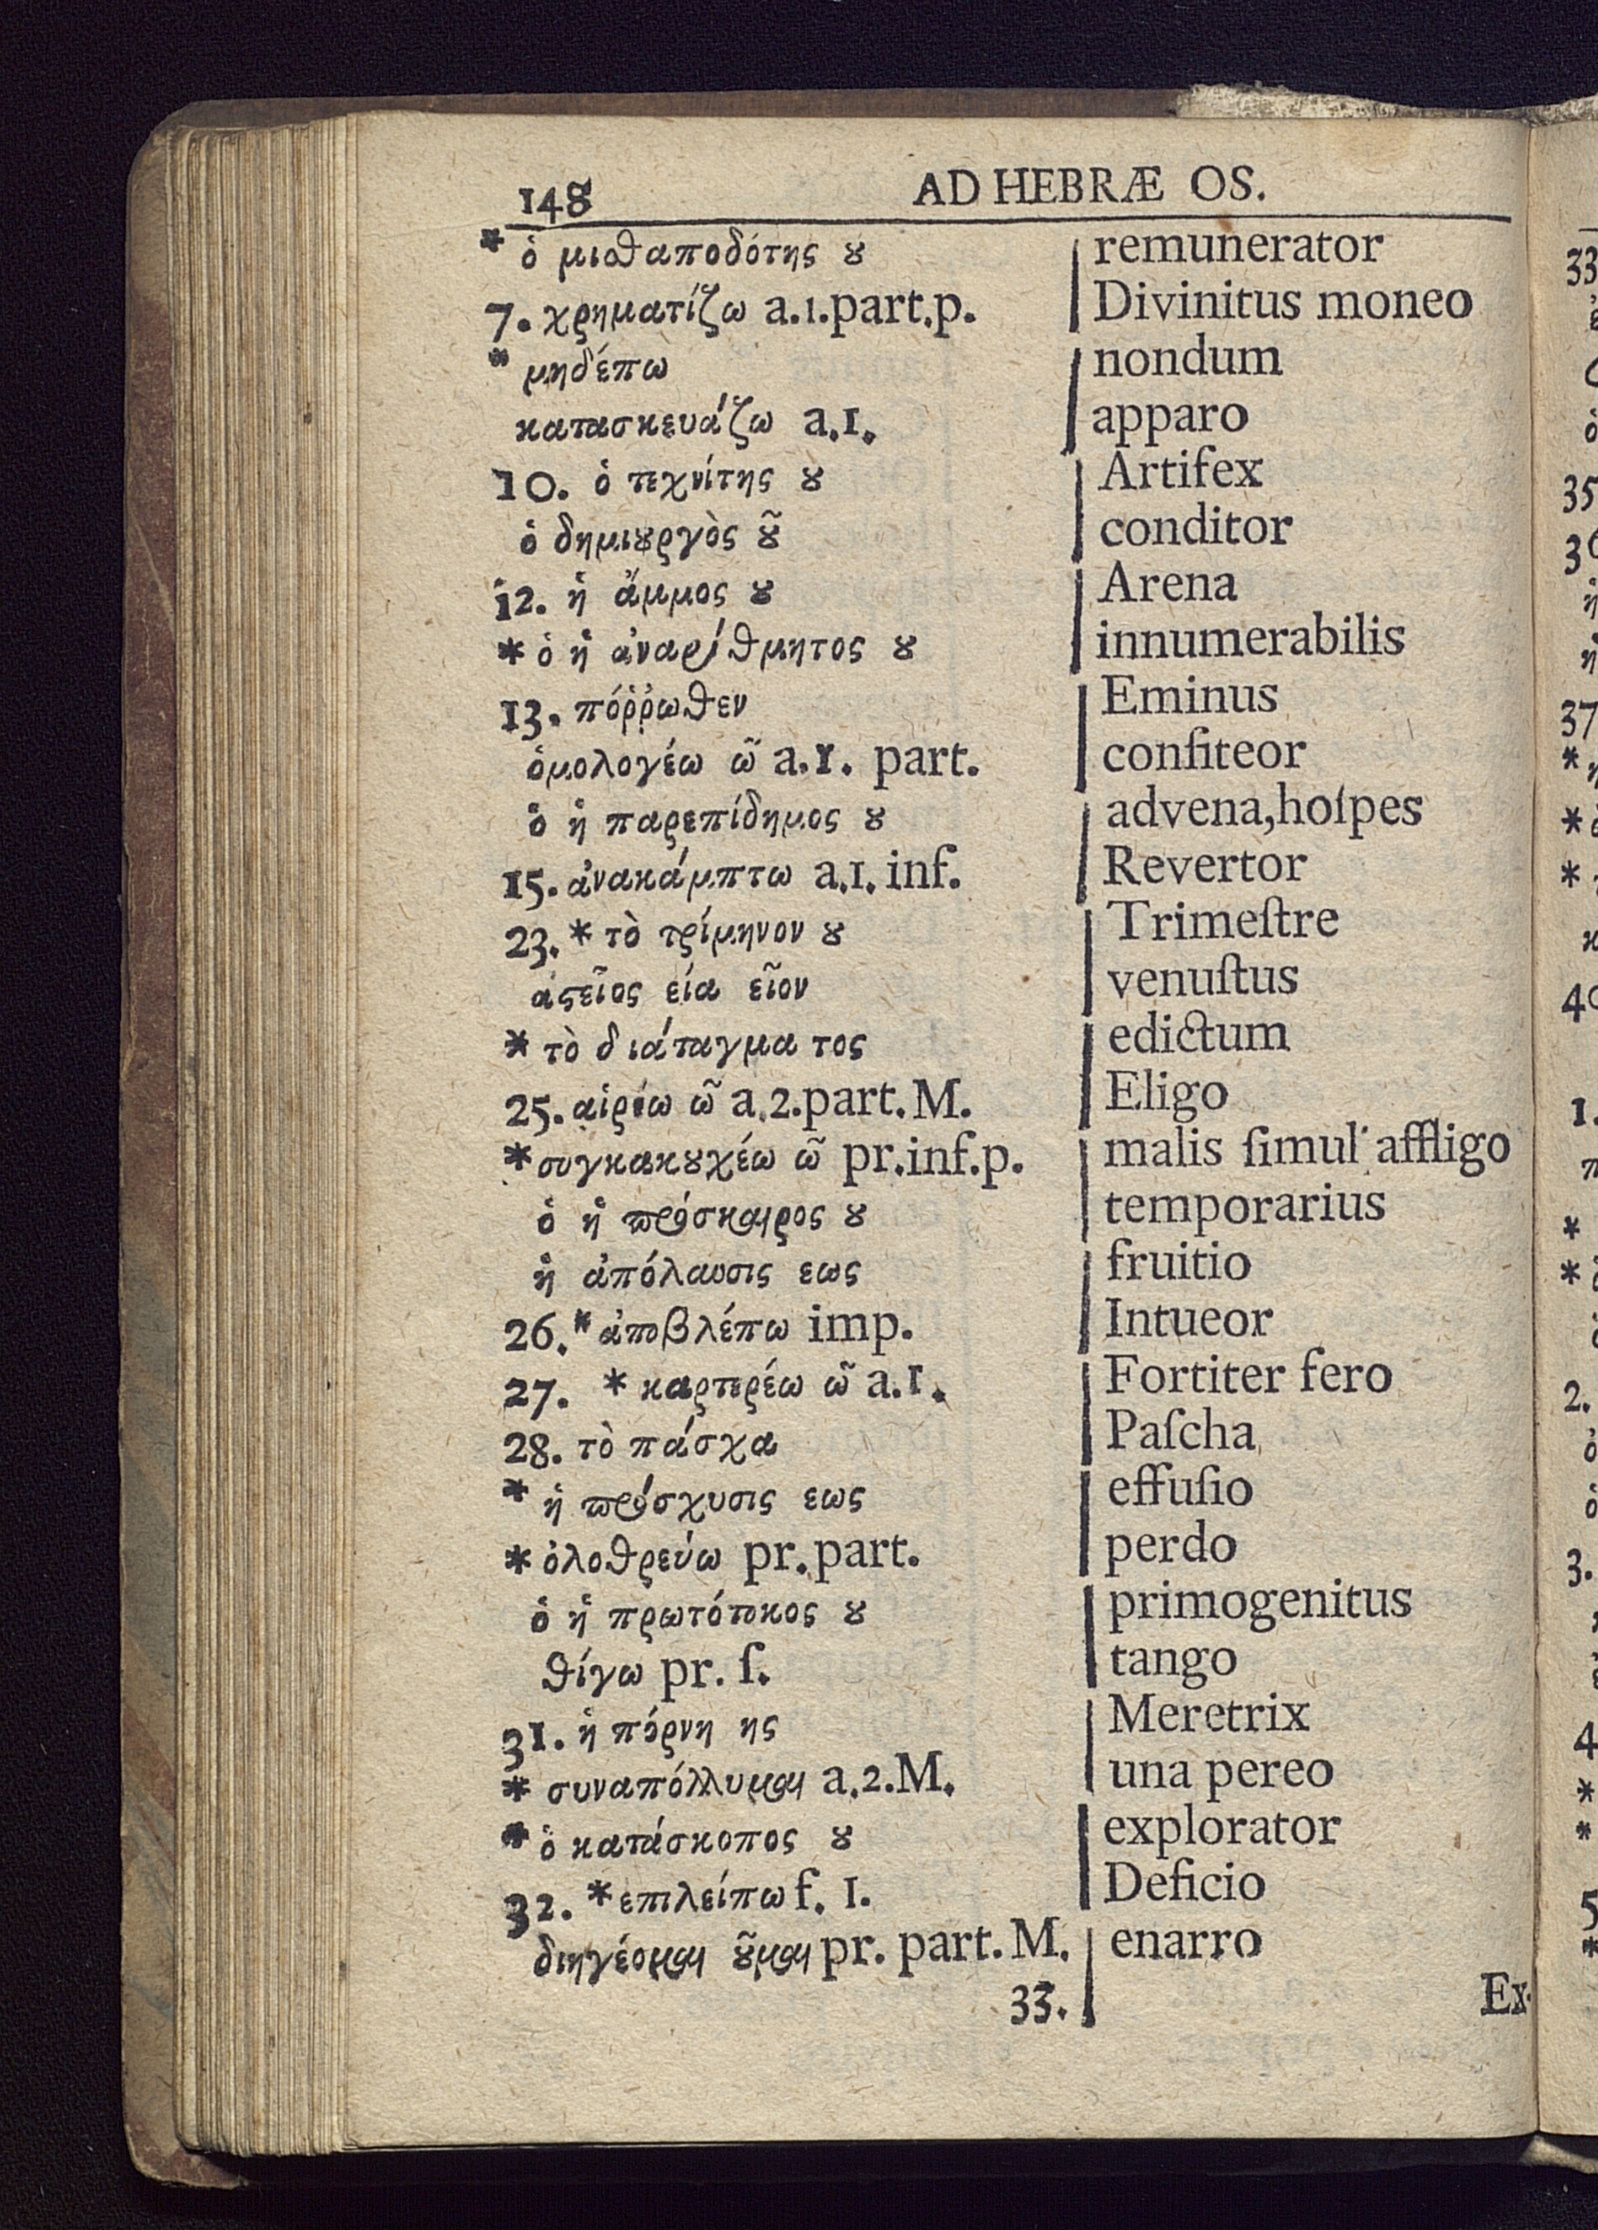 148 AD HEBRÆ OS.
* ὁ μισθαποδότης ȣ remunerator
7. χρηματίζω a.1.part.p. Divinitus moneo
* μηδέπω nondum
κατασκευάζω a.1. apparo
10. ὁ τεχνίτης ȣ Artifex
ὁ δημιȣργὸς ȣ͂ conditor
12. ἡ ἄμμος ȣ Arena
* ὁ ἡ ἀναρίθμητος ȣ innumerabilis
13. πόῤῥωθεν Eminus
ὁμολογέω ῶ a.1. part. confiteor
ὁ ἡ παρεπίδημος ȣ advena,hoſpes
15. ἀνακάμπτω a.1. inf. Revertor
23. * τὸ τρίμηνον ȣ Trimeſtre
ἀϛεῖος εία εῖον venuſtus
* τὸ διάταγμα τος edictum
25. αἱρέω ῶ a.2.part.M. Eligo
* συγκακȣχέω ῶ pr.inf.p. malis ſimul affligo
ὁ ἡ πρόσκαιρος ȣ temporarius
ἡ ἀπόλαυσις εως fruitio
26. * ἀποβλέπω imp. Intueor
27. * καρτερέω ῶ a.1. Fortiter fero
28. τὸ πάσχα Paſcha
* ἡ πρόσχυσις εως effuſio
* ὀλοθρεύω pr.part. perdo
ὁ ἡ πρωτότοκος ȣ primogenitus
θίγω pr. ſ. tango
31. ἡ πόρνη ης Meretrix
* συναπόλλυμαι a.2.M. una pereo
* ὁ κατάσκοπος ȣ explorator
32. * επιλείπω f. 1. Deficio
διηγέομαι ȣ͂μαι pr. part. M. enarro
33. Ex-